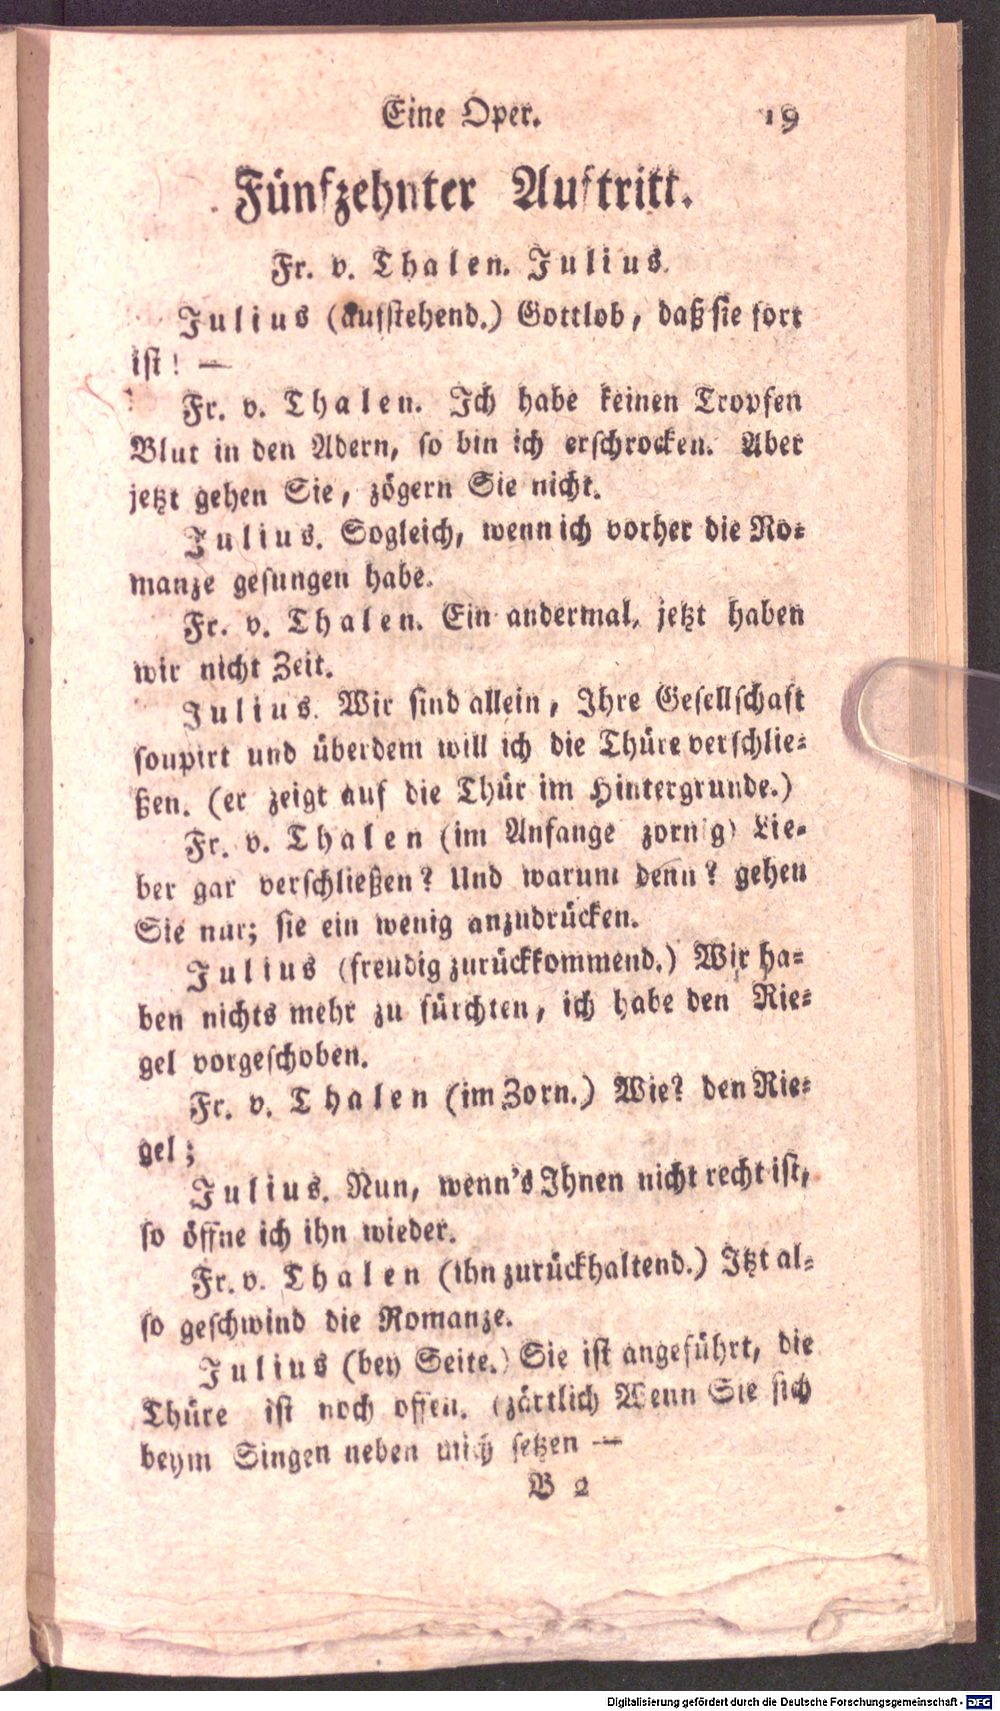 Eine Oper. 19
Fünfzehnter Auftritt.
Fr. v. Thalen. Julius.
Julius (aufstehend.) Gottlob, daß sie fort
ist! —
Fr. v. Thalen. Ich habe keinen Tropfen
Blut in den Adern, so bin ich erschrocken. Aber
jetzt gehen Sie, zögern Sie nicht.
Julius. Sogleich, wenn ich vorher die Ro-
manze gesungen habe.
Fr. v. Thalen. Ein andermal, jetzt haben
wir nicht Zeit.
Julius. Wir sind allein, Ihre Gesellschaft
soupirt und überdem will ich die Thüre verschlie-
ßen. (er zeigt auf die Thür im Hintergrunde.)
Fr. v. Thalen (im Anfange zornig) Lie-
ber gar verschließen? Und warum denn? gehen
Sie nur; sie ein wenig anzudrücken.
Julius (freudig zurückkommend.) Wir ha-
ben nichts mehr zu fürchten, ich habe den Rie-
gel vorgeschoben.
Fr. v. Thalen (im Zorn.) Wie? den Rie-
gel;
Julius. Nun, wenn's Ihnen nicht recht ist,
so öffne ich ihn wieder.
Fr. v. Thalen (ihn zurückhaltend.) Itzt al-
so geschwind die Romanze.
Julius (bey Seite.) Sie ist angeführt, die
Thüre ist noch offen. (zärtlich Wenn Sie sich
beym Singen neben mich setzen —
B 2
Digitalisierung gefördert durch die Deutsche Forschungsgemeinschaft - DFG